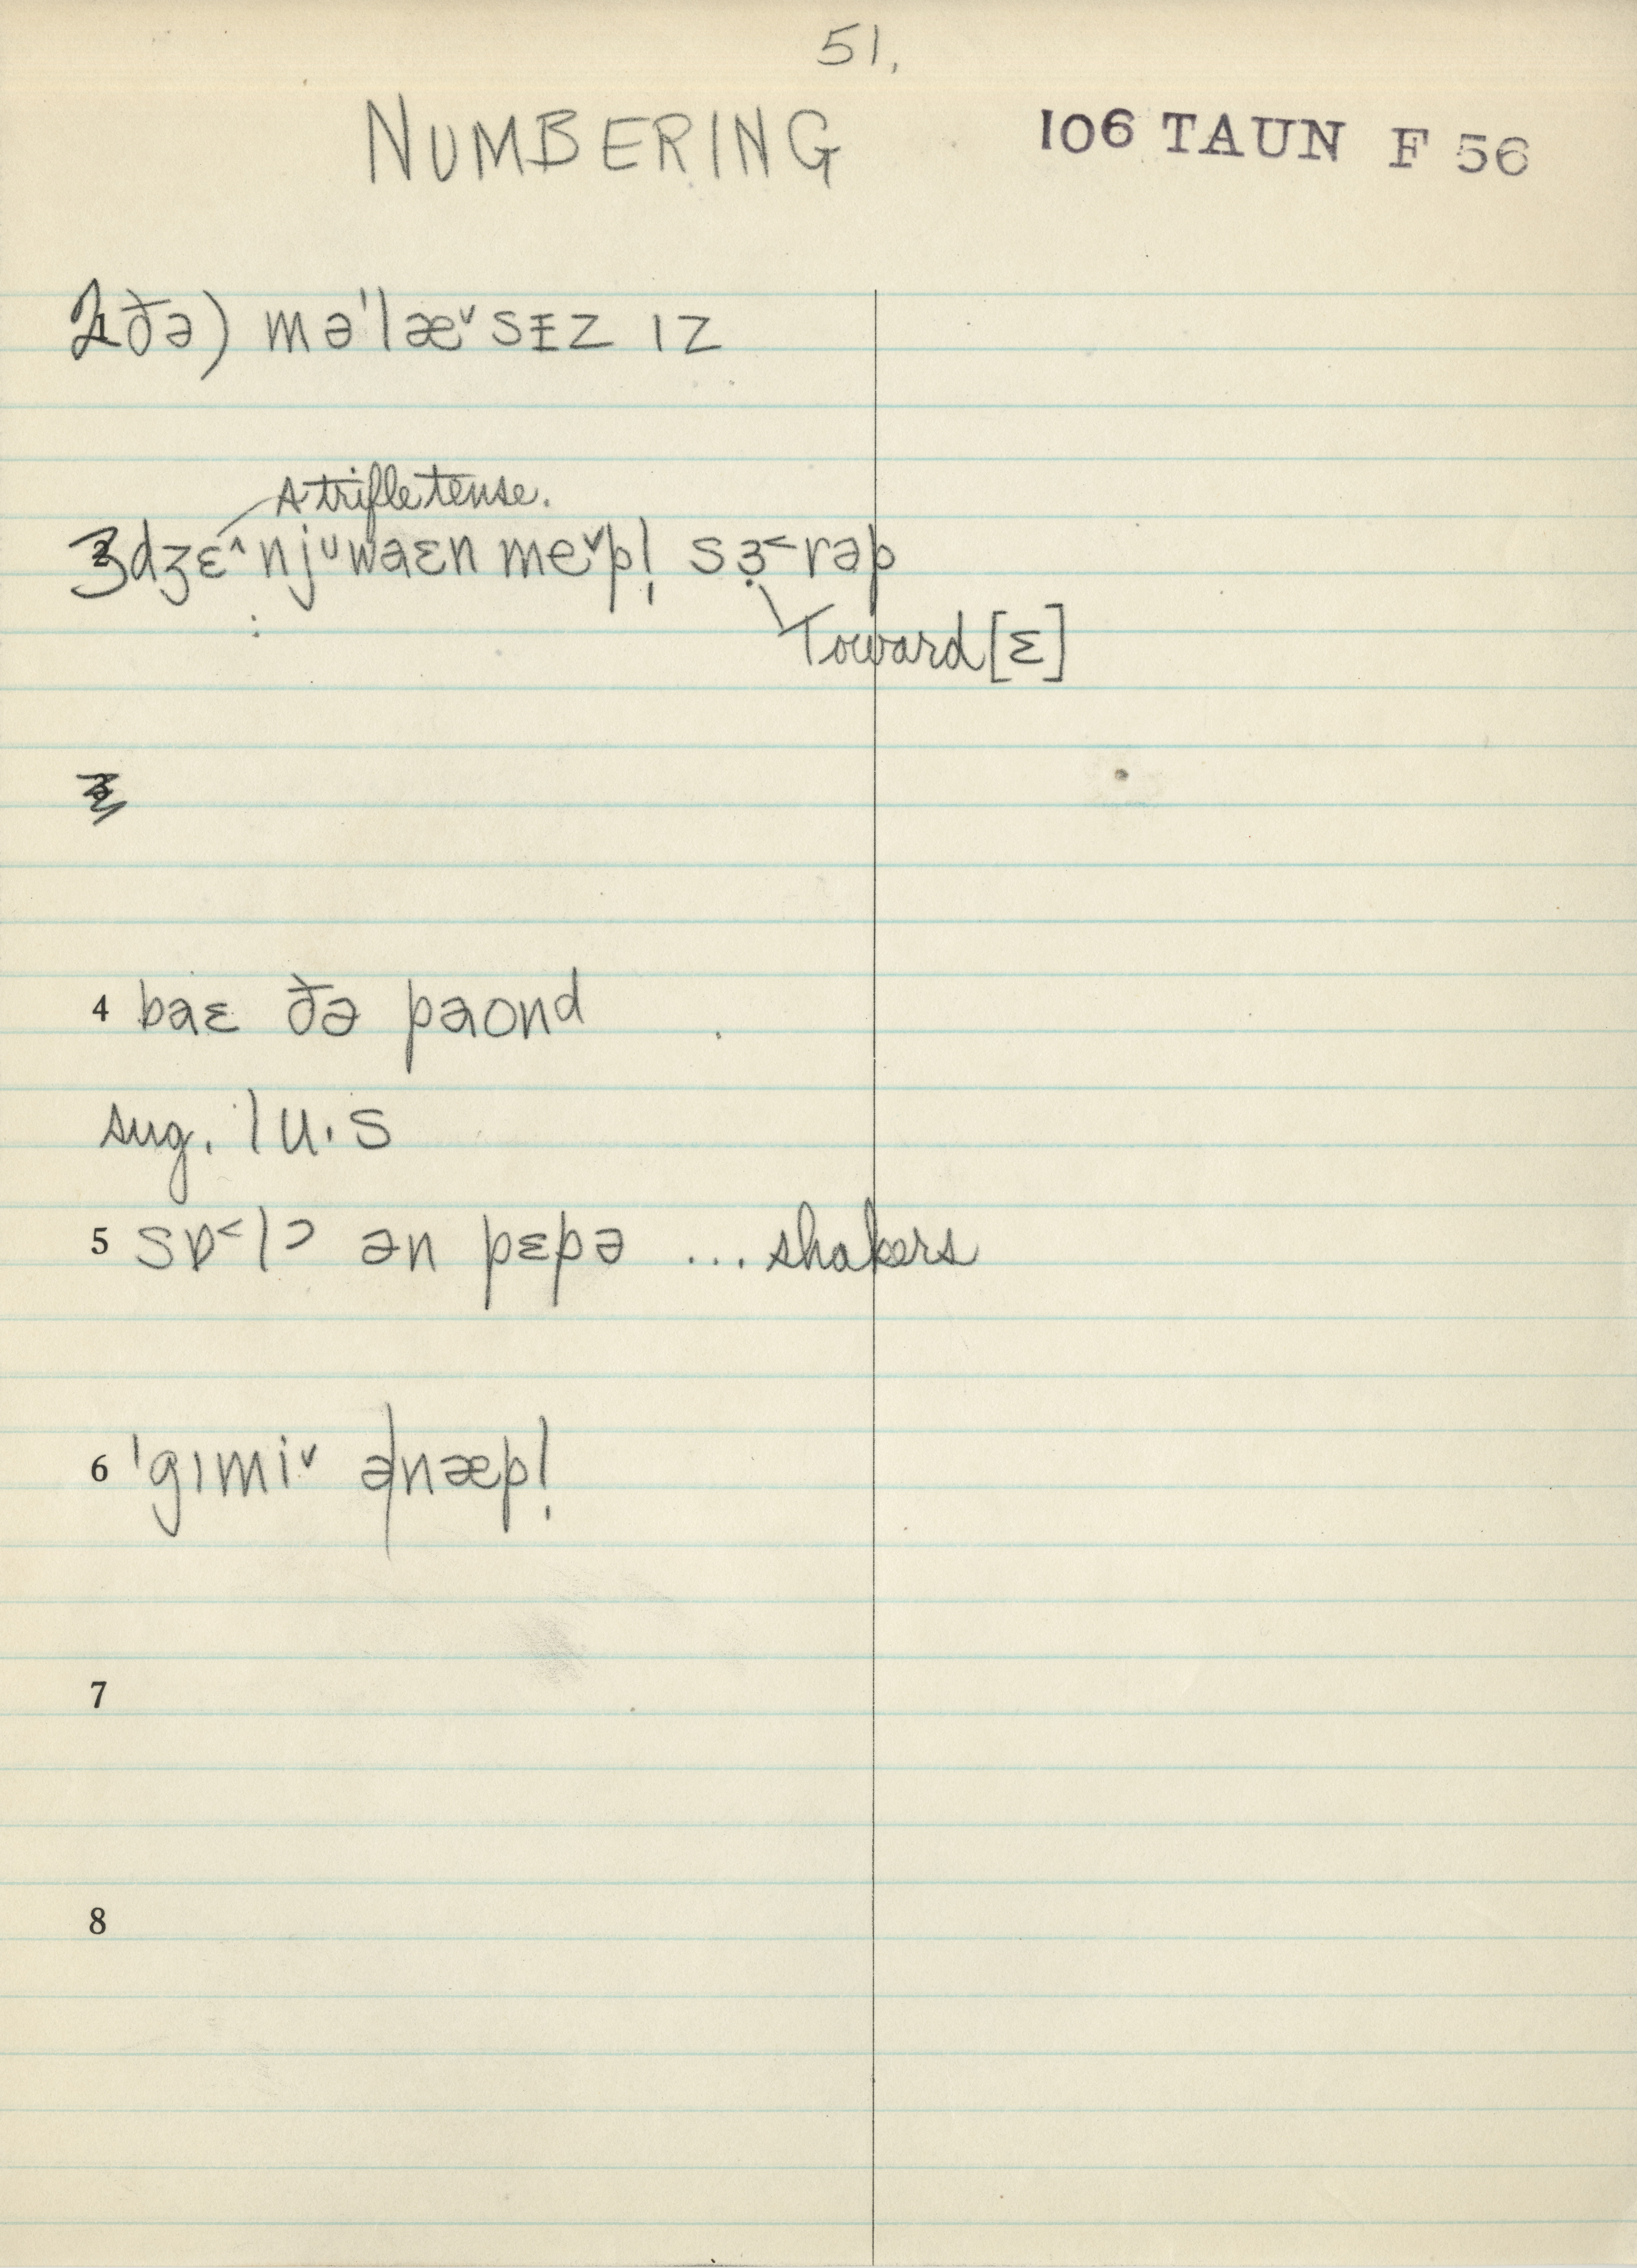 51.
NUMBERING 106 TAUN F 56
2 ðə) mə'læ˅sɪ̵z ɪz
A trifle tense.
3 dʒɛ˄njᴜwaɛn me˅pl̩ sɜ̣˂rəp
Toward [ɛ]
4 baɛ ðə paond
sug. lu·s
5 sɒ˂lɔ ən pɛpə ... shakers
6 'gɪmi˅ ə|næpl̩
7
8